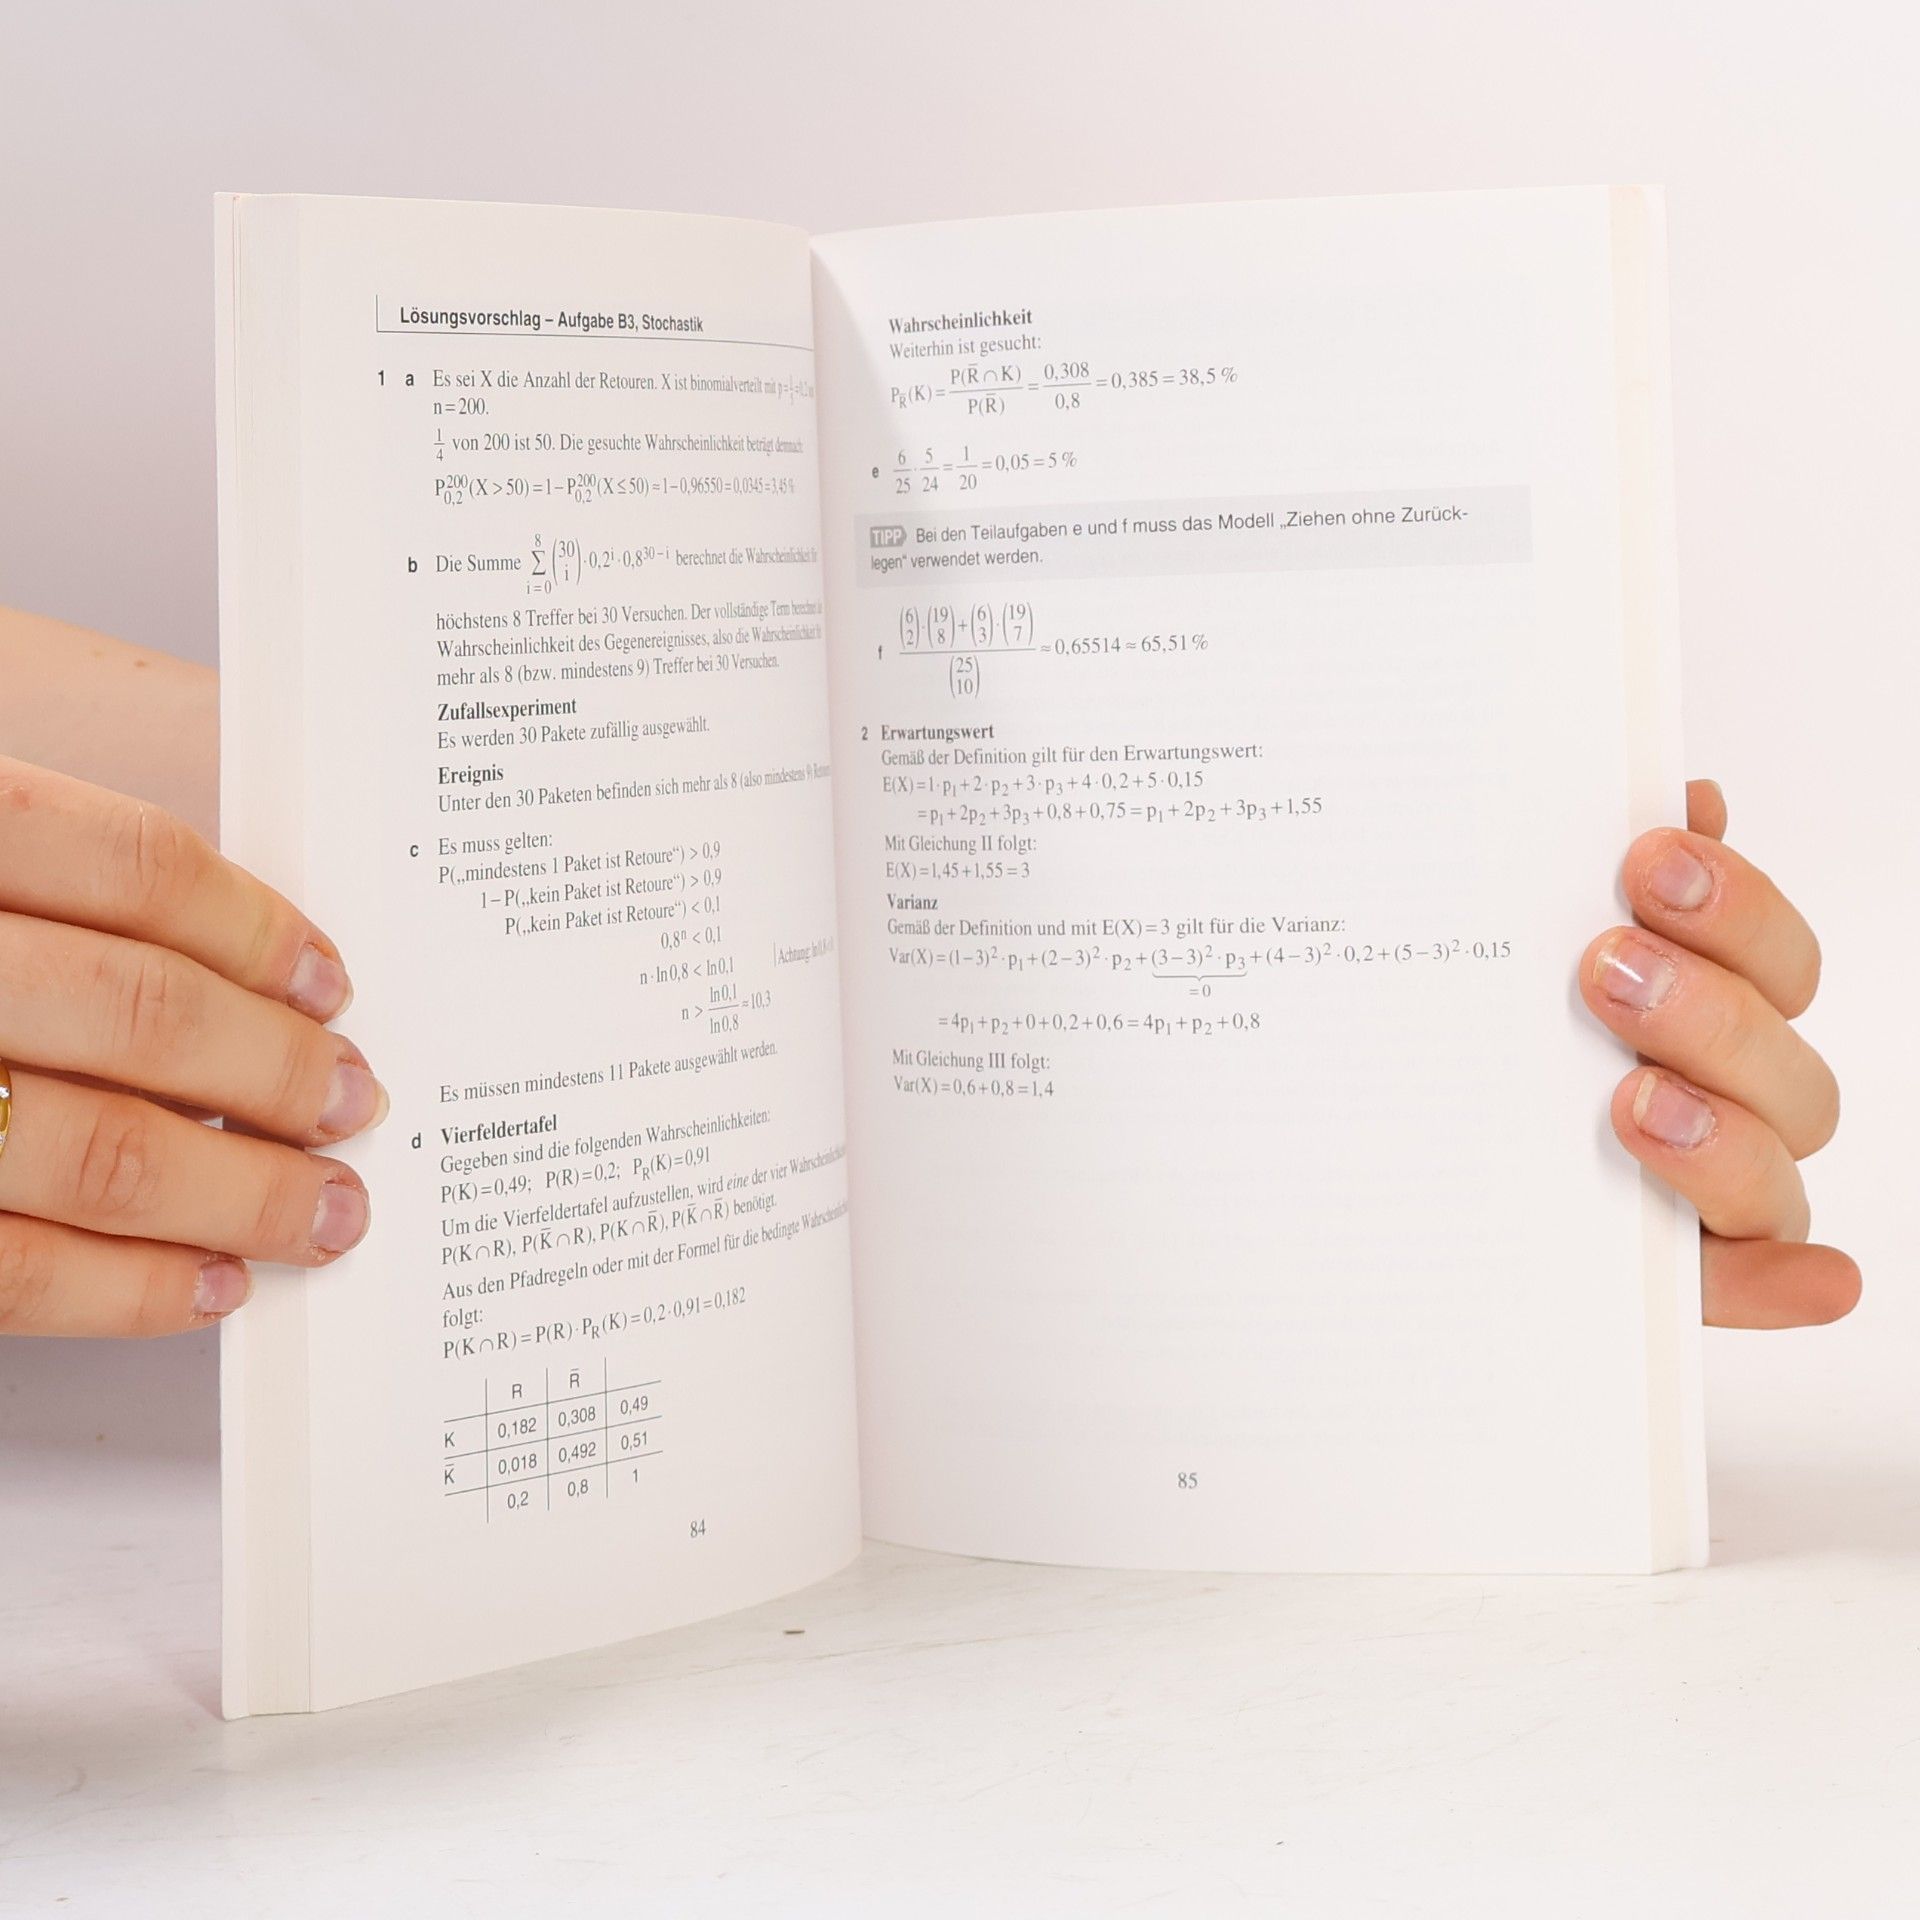 Lösungsvorschlag – Aufgabe B3, Stochastik
1 a Es sei X die Anzahl der Retouren. X ist binomialverteilt mit p=1/5=0,2
n=200.
1/4 von 200 ist 50. Die gesuchte Wahrscheinlichkeit beträgt demnach:
P²⁰⁰₀,₂(X>50)=1−P²⁰⁰₀,₂(X≤50)≈1−0,96550=0,0345=3,45%
b Die Summe ∑_{i=0}^{8} (30 i)·0,2ⁱ·0,8³⁰⁻ⁱ berechnet die Wahrscheinlichkeit für
höchstens 8 Treffer bei 30 Versuchen. Der vollständige Term berechnet
Wahrscheinlichkeit des Gegenereignisses, also die Wahrscheinlichkeit für
mehr als 8 (bzw. mindestens 9) Treffer bei 30 Versuchen.
Zufallsexperiment
Es werden 30 Pakete zufällig ausgewählt.
Ereignis
Unter den 30 Paketen befinden sich mehr als 8 (also mindestens 9)
c Es muss gelten:
P(„mindestens 1 Paket ist Retoure“) > 0,9
1−P(„kein Paket ist Retoure“) > 0,9
P(„kein Paket ist Retoure“) < 0,1
0,8ⁿ < 0,1
n·ln0,8 < ln0,1 | Achtung:
n > ln0,1/ln0,8 ≈10,3
Es müssen mindestens 11 Pakete ausgewählt werden.
d Vierfeldertafel
Gegeben sind die folgenden Wahrscheinlichkeiten:
P(K)=0,49; P(R)=0,2; P_R(K)=0,91
Um die Vierfeldertafel aufzustellen, wird eine der vier Wahrscheinlichkeiten
P(K∩R), P(K̄∩R), P(K∩R̄), P(K̄∩R̄) benötigt.
Aus den Pfadregeln oder mit der Formel für die bedingte
folgt:
P(K∩R)=P(R)·P_R(K)=0,2·0,91=0,182
R R̄
K 0,182 0,308 0,49
K̄ 0,018 0,492 0,51
0,2 0,8 1
84
Wahrscheinlichkeit
Weiterhin ist gesucht:
P_R̄(K)=P(R̄∩K)/P(R̄)=0,308/0,8=0,385=38,5 %
e 6/25·5/24=1/20=0,05=5 %
TIPP Bei den Teilaufgaben e und f muss das Modell „Ziehen ohne Zurück-
legen“ verwendet werden.
f ((6 2)·(19 8)+(6 3)·(19 7))/(25 10)≈0,65514≈65,51 %
2 Erwartungswert
Gemäß der Definition gilt für den Erwartungswert:
E(X)=1·p₁+2·p₂+3·p₃+4·0,2+5·0,15
=p₁+2p₂+3p₃+0,8+0,75=p₁+2p₂+3p₃+1,55
Mit Gleichung II folgt:
E(X)=1,45+1,55=3
Varianz
Gemäß der Definition und mit E(X)=3 gilt für die Varianz:
Var(X)=(1−3)²·p₁+(2−3)²·p₂+(3−3)²·p₃+(4−3)²·0,2+(5−3)²·0,15
=0
=4p₁+p₂+0+0,2+0,6=4p₁+p₂+0,8
Mit Gleichung III folgt:
Var(X)=0,6+0,8=1,4
85